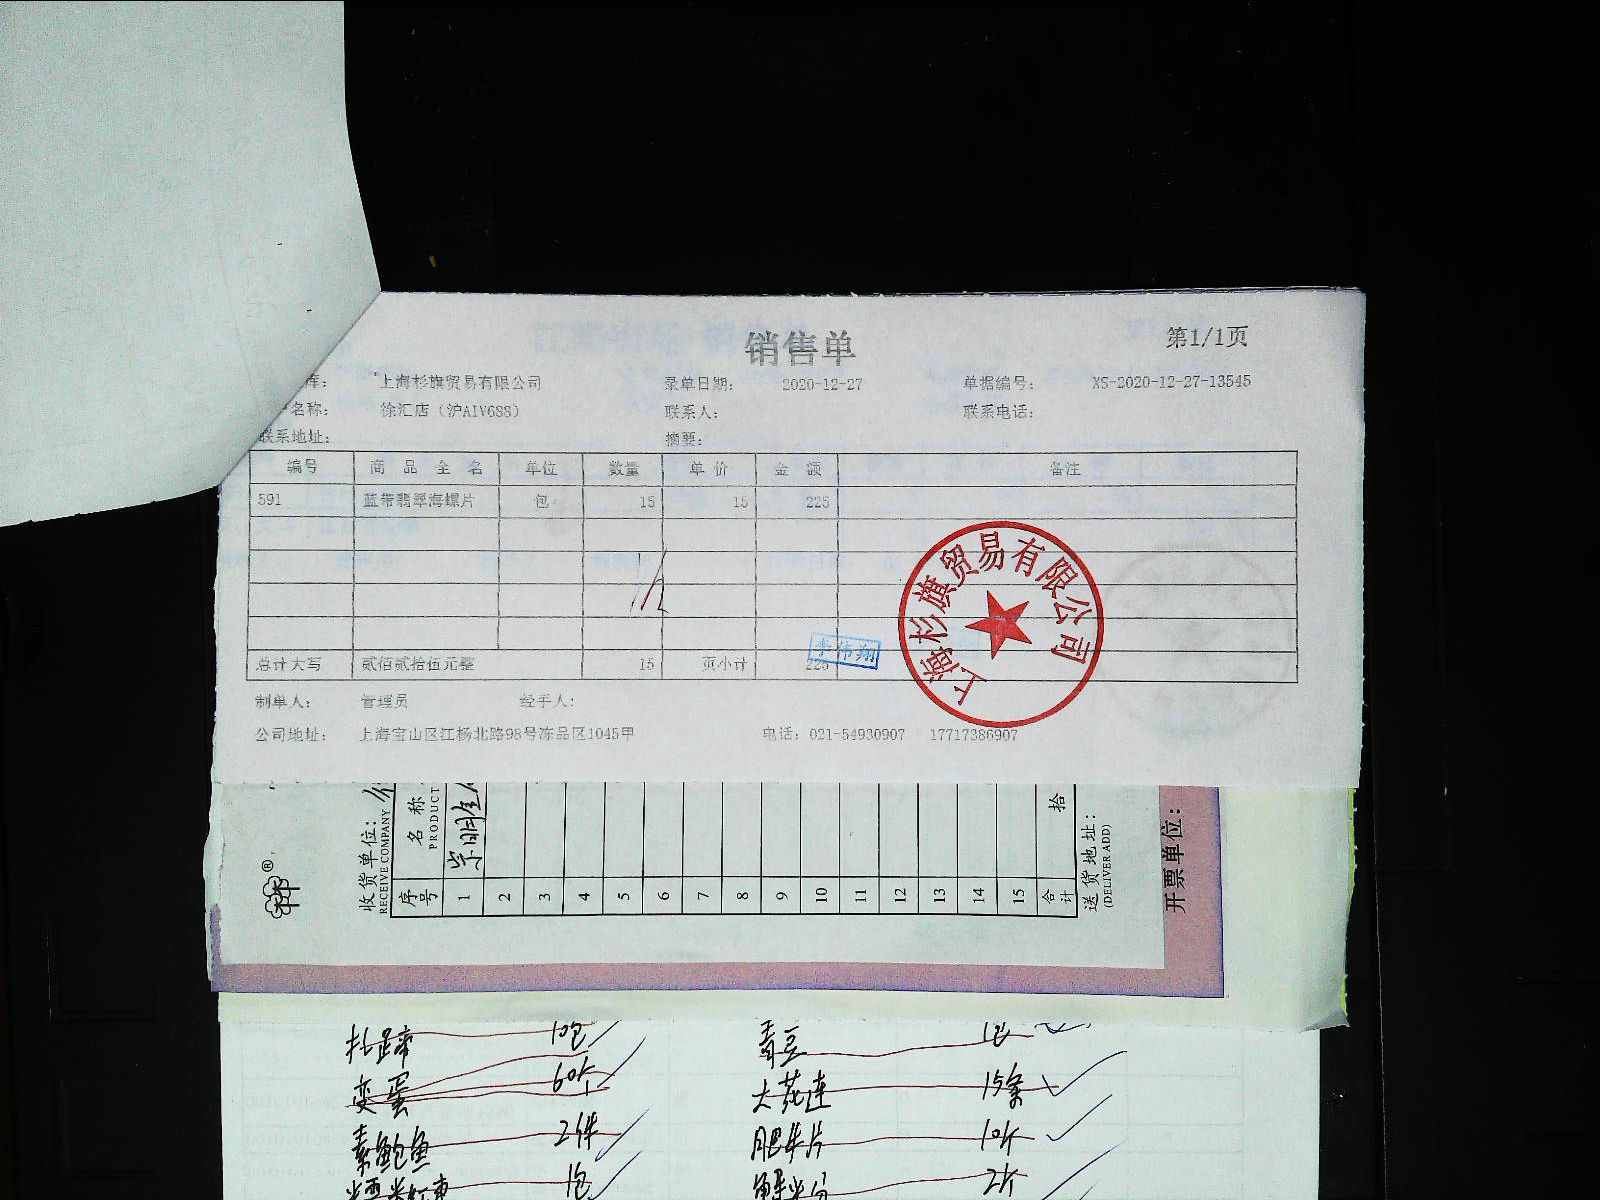 销售单
第1/1页
库： 上海杉旗贸易有限公司 录单日期： 2020-12-27 单据编号： XS-2020-12-27-13545
名称： 徐汇店（沪AIV688） 联系人： 联系电话：
联系地址： 摘要：
编号 商品全名 单位 数量 单价 金额 备注
591 蓝带翡翠海螺片 包 15 15 225
总计大写 贰佰贰拾伍元整 15 页小计 225
李伟翔
上海杉旗贸易有限公司
制单人： 管理员 经手人：
公司地址： 上海宝山区江杨北路98号冻品区1045甲 电话：021-54930907 17717386907
收货单位：
RECEIVE COMPANY
序号 名称
PRODUCT
1 崇明
2
3
4
5
6
7
8
9
10
11
12
13
14
15
合计 拾
送货地址：
(DELIVER ADD)
开票单位：
扎蹄 10包 青豆 1包
变蛋 60个 大花连 15条
素鲍鱼 2件 肥牛片 10斤
1包 2斤